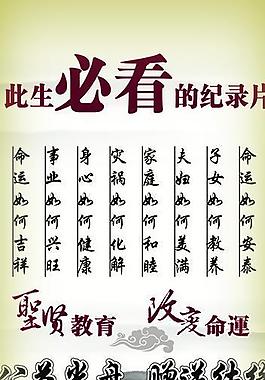 此生必看的纪录片
命运如何安泰
子女如何教养
夫妇如何美满
家庭如何和睦
灾祸如何化解
身心如何健康
事业如何兴旺
命运如何吉祥
聖贤教育 改变命運